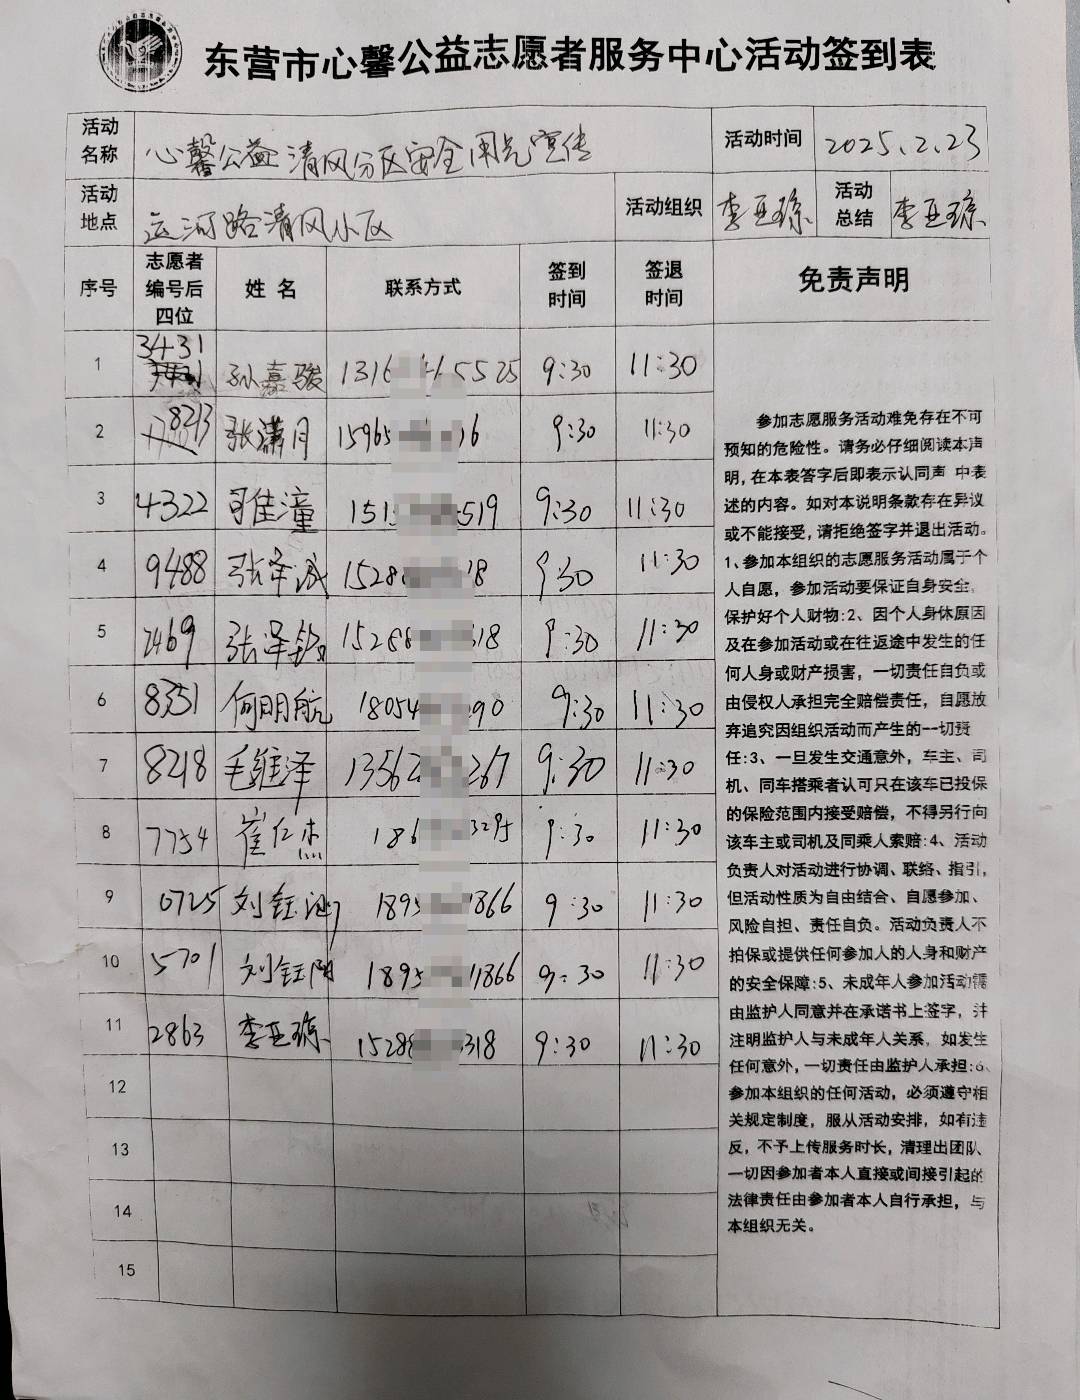 东营市心馨公益志愿者服务中心活动签到表
活动名称 心馨公益清风分区安全用气宣传 活动时间 2025.2.23
活动地点 运河路清风小区 活动组织 李亚琼 活动总结 李亚琼
序号 志愿者编号后四位 姓名 联系方式 签到时间 签退时间 免责声明
1 3431 孙嘉骏 1316 5525 9:30 11:30
2 8213 张潇月 15965 16 9:30 11:30
3 4322 佳潼 151 519 9:30 11:30
4 9488 张泽诚 15288 18 9:30 11:30
5 2469 张泽 15288 318 9:30 11:30
6 8351 何明航 18054 90 9:30 11:30
7 8218 毛维泽 13562 267 9:30 11:30
8 7754 崔仁杰 186 3295 9:30 11:30
9 0725 刘钰 1895 1866 9:30 11:30
10 5701 刘钰阳 1895 1866 9:30 11:30
11 2863 李亚琼 15288 318 9:30 11:30
12
13
14
15
参加志愿服务活动难免存在不可
预知的危险性。请务必仔细阅读本声
明,在本表答字后即表示认同声 中表
述的内容。如对本说明条款存在异议
或不能接受,请拒绝签字并退出活动。
1、参加本组织的志愿服务活动属于个
人自愿，参加活动要保证自身安全,
保护好个人财物:2、因个人身休原因
及在参加活动或在往返途中发生的任
何人身或财产损害，一切责任自负或
由侵权人承担完全赔偿责任，自愿放
弃追究因组织活动而产生的一切责
任:3、一旦发生交通意外，车主、司
机、同车搭乘者认可只在该车已投保
的保险范围内接受赔偿，不得另行向
该车主或司机及同乘人索赔:4、活动
负责人对活动进行协调、联络、指引,
但活动性质为自由结合、自愿参加、
风险自担、责任自负。活动负责人不
拍保或提供任何参加人的人身和财产
的安全保障:5、未成年人参加活动需
由监护人同意并在承诺书上签字，并
注明监护人与未成年人关系，如发生
任何意外,一切责任由监护人承担:6、
参加本组织的任何活动，必须遵守相
关规定制度，服从活动安排，如有违
反，不予上传服务时长，清理出团队、
一切因参加者本人直接或间接引起的
法律责任由参加者本人自行承担，与
本组织无关。